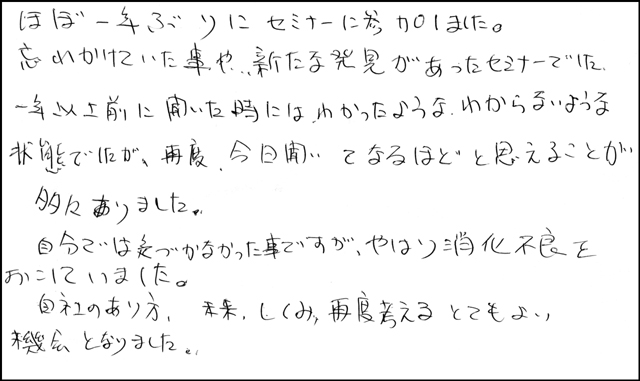 ほぼ一年ぶりにセミナーに参加しました。
忘れかけていた事や、新たな発見があったセミナーでした。
一年以上前に聞いた時には、わかったような、わからないような
状態でしたが、再度、今日聞いてなるほどと思えることが
多々ありました。
自分では気づかなかった事ですが、やはり消化不良を
おこしていました。
自社のあり方、未来、しくみ、再度考えるとてもよい
機会となりました。